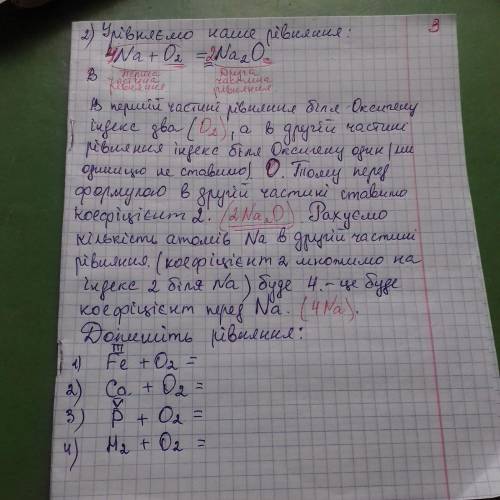 3
2) Урівняємо наше рівняння:
4Na + O₂ = 2Na₂O
Перша частина рівняння
Друга частина рівняння
В
В першій частині рівняння біля Оксигену
індекс два (O₂), а в другій частині
рівняння індекс біля Оксигену один (ми
одиницю не ставимо) O. Тому перед
формулою в другій частині ставимо
коефіцієнт 2. (2Na₂O). Рахуємо
кількість атомів Na в другій частині
рівняння. (коефіцієнт 2 множимо на
індекс 2 біля Na) буде 4. – це буде
коефіцієнт перед Na. (4Na).
Допишіть рівняння:
III
1) Fe + O₂ =
2) Ca + O₂ =
V
3) P + O₂ =
4) H₂ + O₂ =